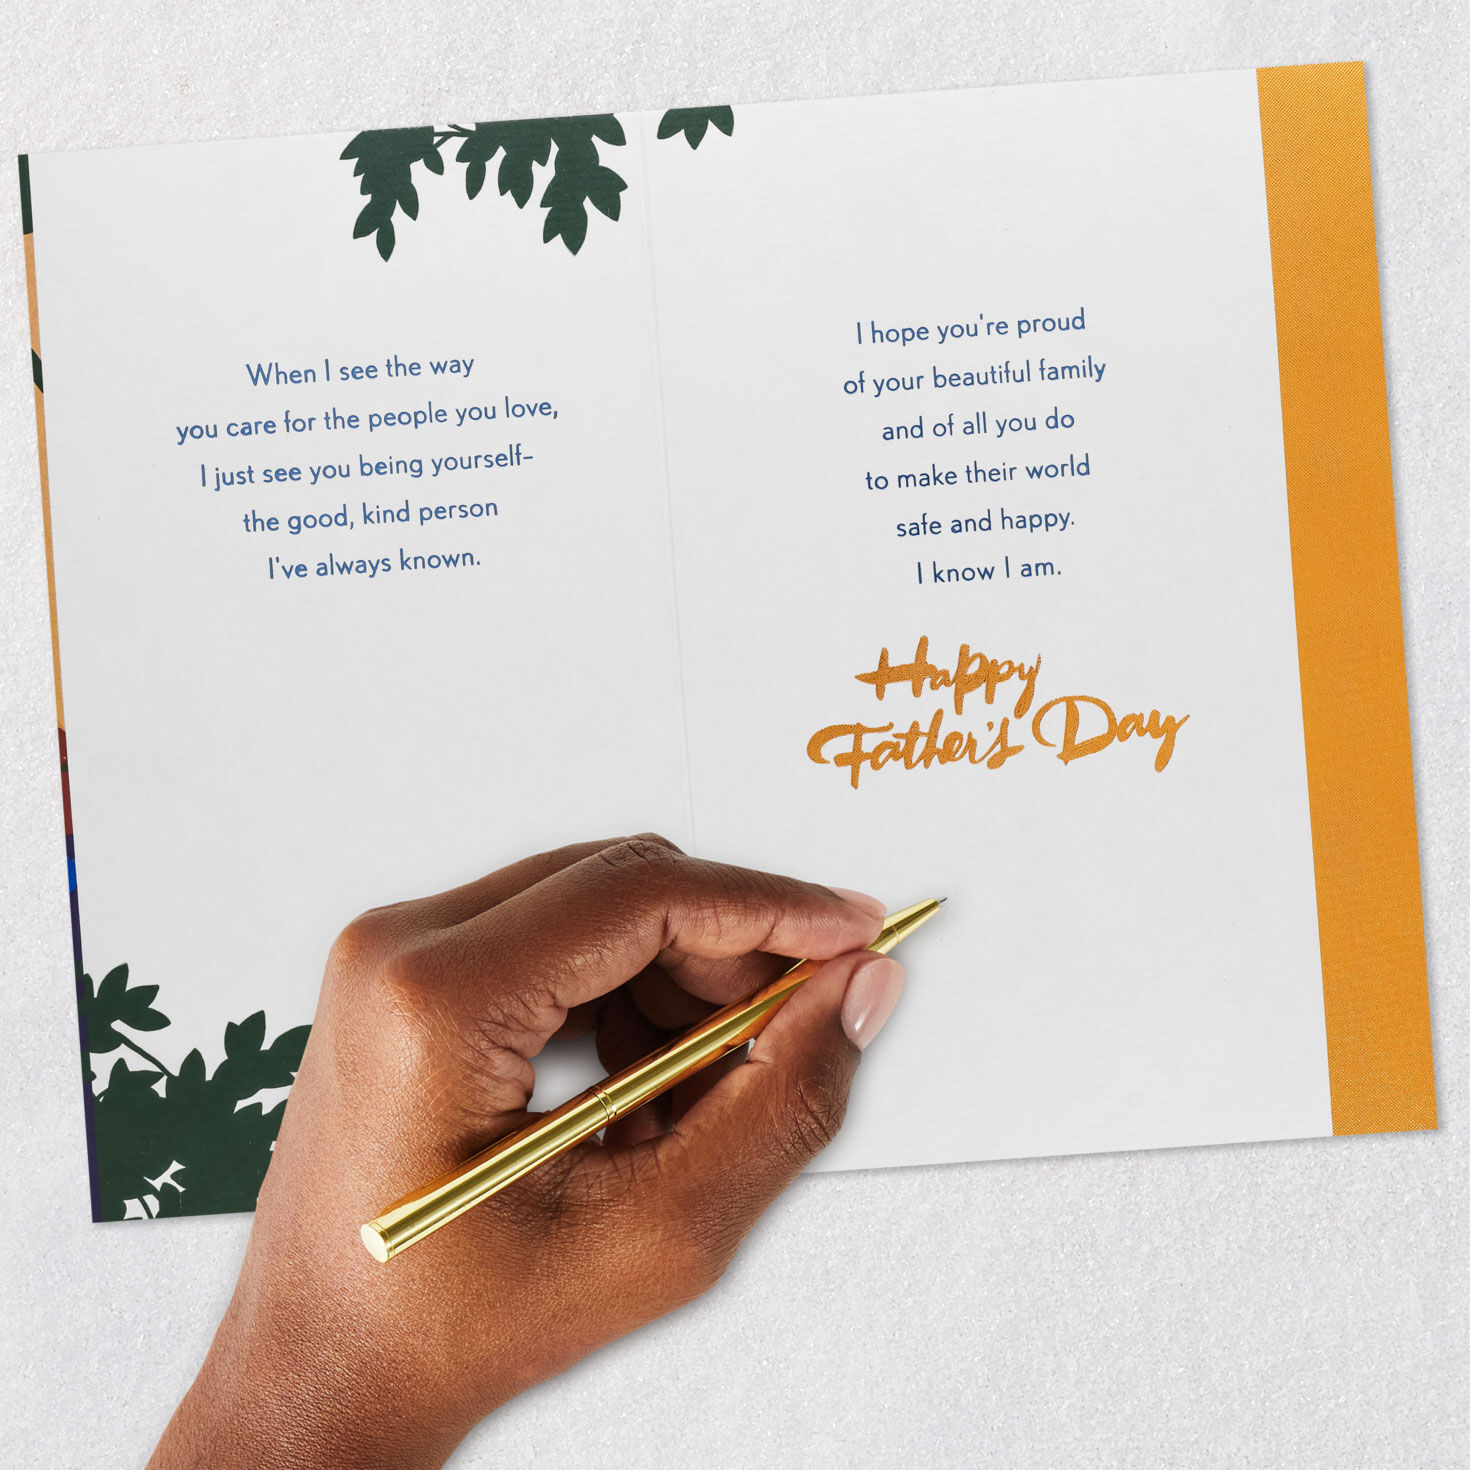 When I see the way
you care for the people you love,
I just see you being yourself–
the good, kind person
I've always known.
I hope you're proud
of your beautiful family
and of all you do
to make their world
safe and happy.
I know I am.
Happy
Father's Day